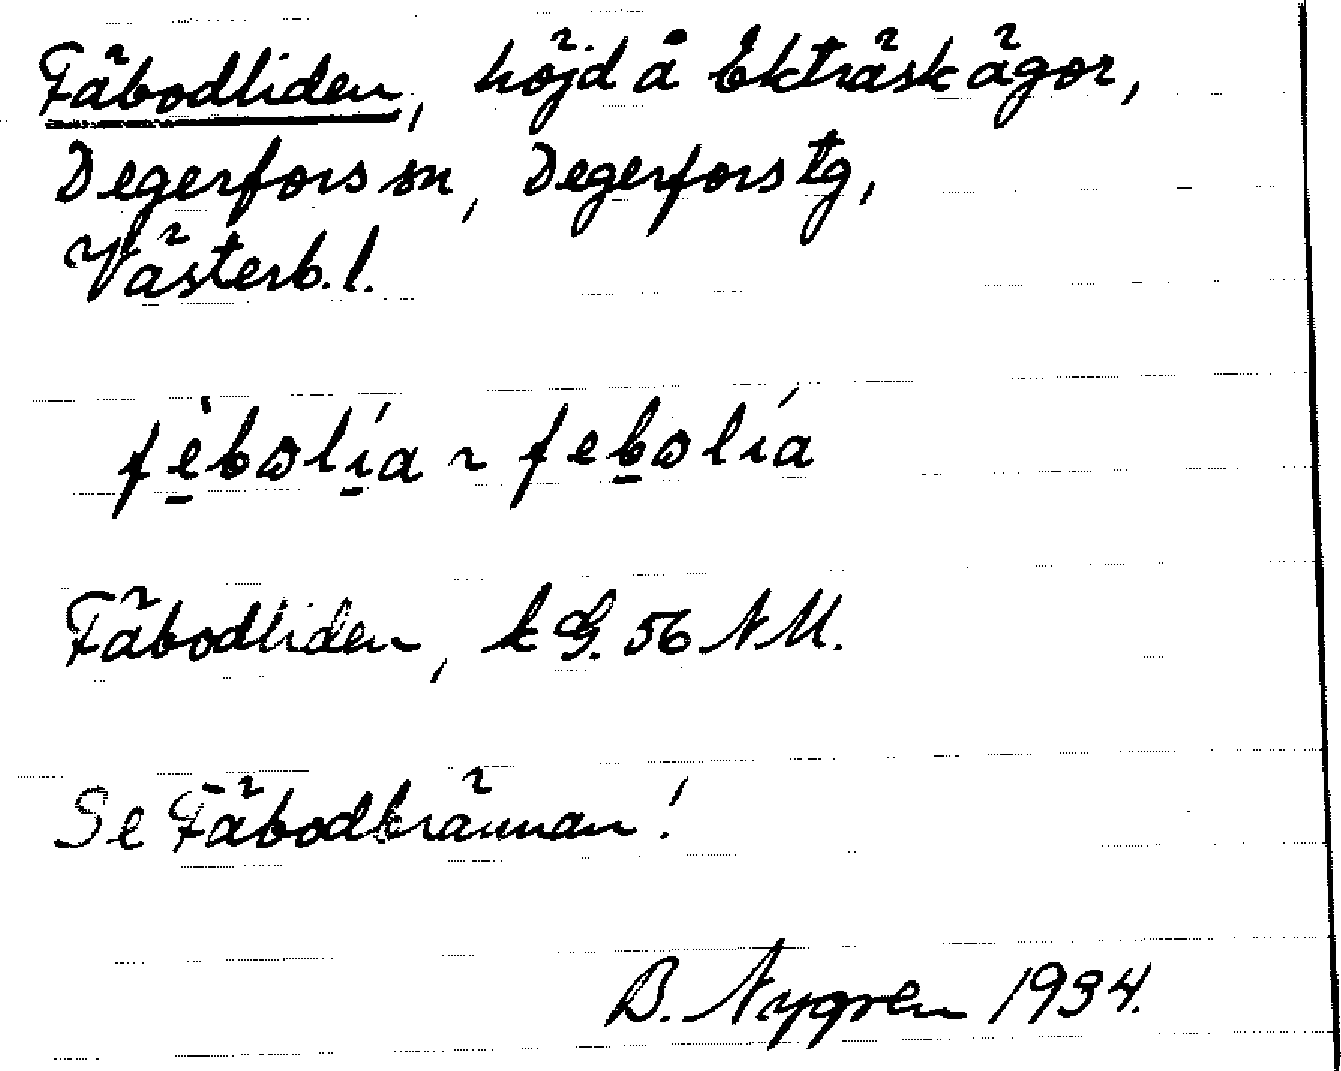 Fäbodliden, höjd å Ekträsk ägor,
Degerfors sn, Degerfors tg,
Västerb. l.
fèbolía ~ febolía
Fäbodliden, k G. 56 NM.
Se Fäbodbrännan!
B. Nygren 1934.